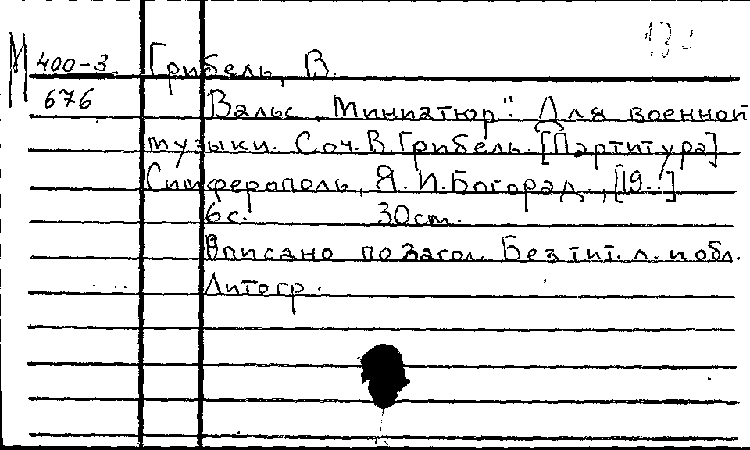 М 400-3 Грибель, В.
676 Вальс „Миниатюр". Для военной
музыки. Соч. В. Грибель. [Партитура]
Симферополь, Я. И. Богорад., [19..]
6 с. 30 см.
Вписано по загол. Без тит. л. и обл.
Литогр.